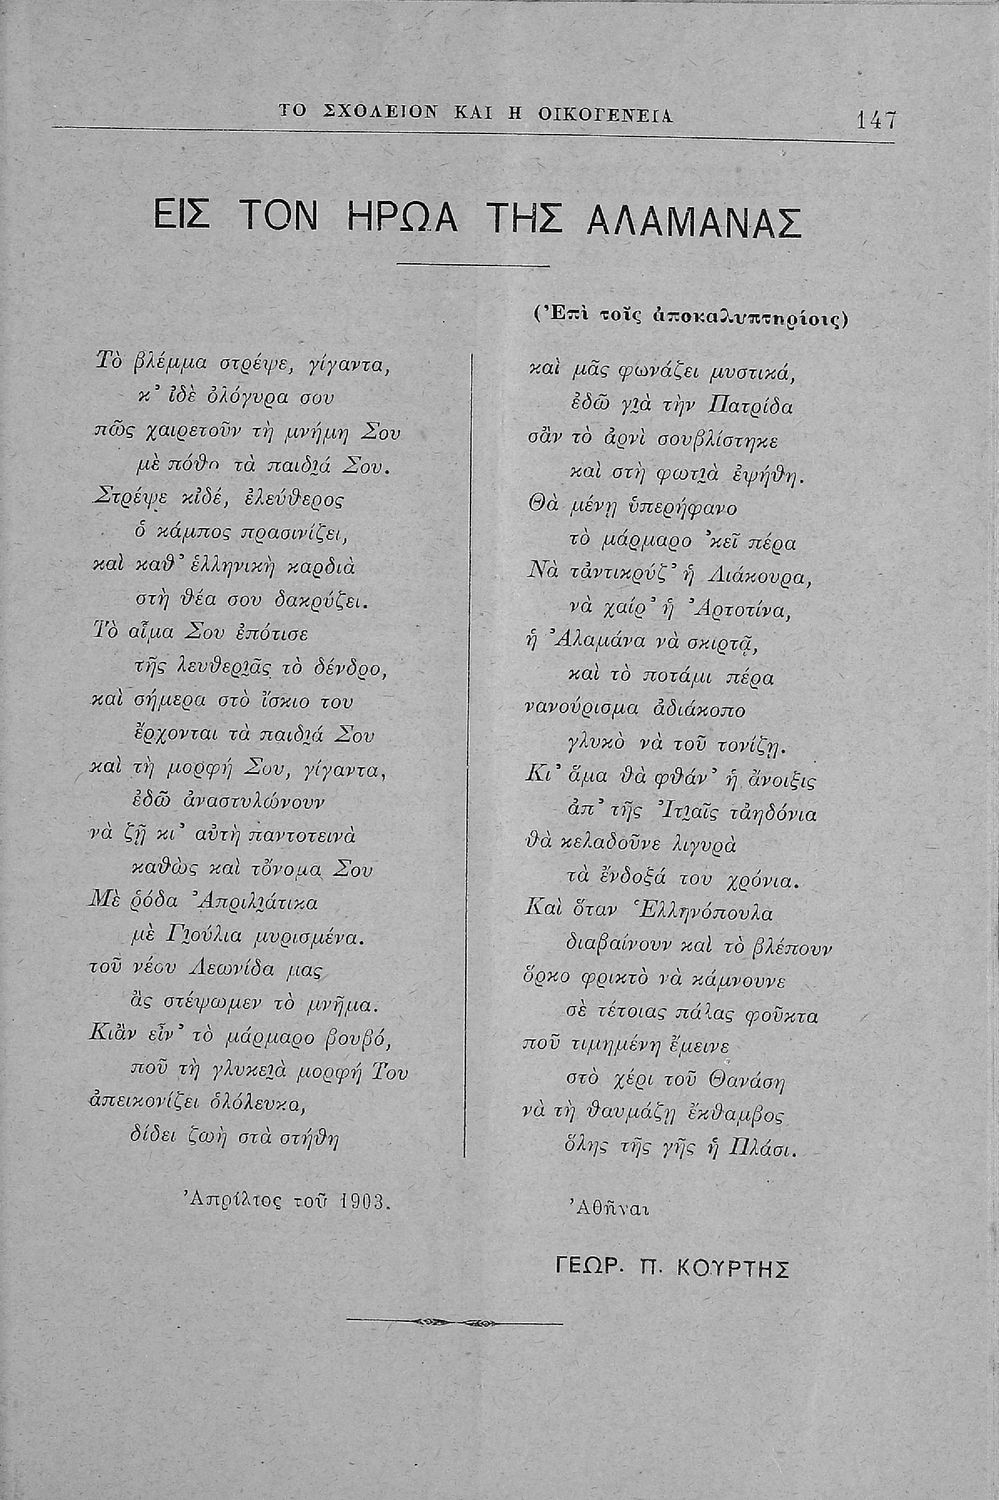 ΤΟ ΣΧΟΛΕΙΟΝ ΚΑΙ Η ΟΙΚΟΓΕΝΕΙΑ 147
ΕΙΣ ΤΟΝ ΗΡΩΑ ΤΗΣ ΑΛΑΜΑΝΑΣ
(Ἐπὶ τοῖς ἀποκαλυπτηρίοις)
Τὸ βλέμμα στρέψε, γίγαντα,
κ' ἰδὲ ὁλόγυρα σου
πῶς χαιρετοῦν τὴ μνήμη Σου
μὲ πόθο τὰ παιδιά Σου.
Στρέψε κἰδέ, ἐλεύθερος
ὁ κάμπος πρασινίζει,
καὶ καθ' ἑλληνικὴ καρδιὰ
στὴ θέα σου δακρύζει.
Τὸ αἷμα Σου ἐπότισε
τῆς λευθεριᾶς τὸ δένδρο,
καὶ σήμερα στὸ ἴσκιο του
ἔρχονται τὰ παιδιά Σου
καὶ τὴ μορφή Σου, γίγαντα,
ἐδῶ ἀναστυλώνουν
νὰ ζῇ κι' αὐτὴ παντοτεινὰ
καθὼς καὶ τὄνομα Σου
Μὲ ῥόδα Ἀπριλιάτικα
μὲ Γιούλια μυρισμένα.
τοῦ νέου Λεωνίδα μας
ἂς στέψωμεν τὸ μνῆμα.
Κιἂν εἶν' τὸ μάρμαρο βουβό,
ποῦ τὴ γλυκειὰ μορφή Του
ἀπεικονίζει ὁλόλευκα,
δίδει ζωὴ στὰ στήθη
Ἀπρίλιος τοῦ 1903.
καὶ μᾶς φωνάζει μυστικά,
ἐδῶ γιὰ τὴν Πατρίδα
σἂν τὸ ἀρνὶ σουβλίστηκε
καὶ στὴ φωτιὰ ἐψήθη.
Θὰ μένῃ ὑπερήφανο
τὸ μάρμαρο 'κεῖ πέρα
Νὰ τἀντικρύζ' ἡ Λιάκουρα,
νὰ χαίρ' ἡ Ἀρτοτίνα,
ἡ Ἀλαμάνα νὰ σκιρτᾷ,
καὶ τὸ ποτάμι πέρα
νανούρισμα ἀδιάκοπο
γλυκὸ νὰ τοῦ τονίζῃ.
Κι' ἅμα θὰ φθάν' ἡ ἄνοιξις
ἀπ' τῆς Ἰτιαῖς τἀηδόνια
θὰ κελαδοῦνε λιγυρὰ
τὰ ἔνδοξά του χρόνια.
Καὶ ὅταν Ἑλληνόπουλα
διαβαίνουν καὶ τὸ βλέπουν
ὅρκο φρικτὸ νὰ κάμνουνε
σὲ τέτοιας πάλας φοῦκτα
ποῦ τιμημένη ἔμεινε
στὸ χέρι τοῦ Θανάση
νὰ τὴ θαυμάζῃ ἔκθαμβος
ὅλης τῆς γῆς ἡ Πλάσι.
Ἀθῆναι
ΓΕΩΡ. Π. ΚΟΥΡΤΗΣ